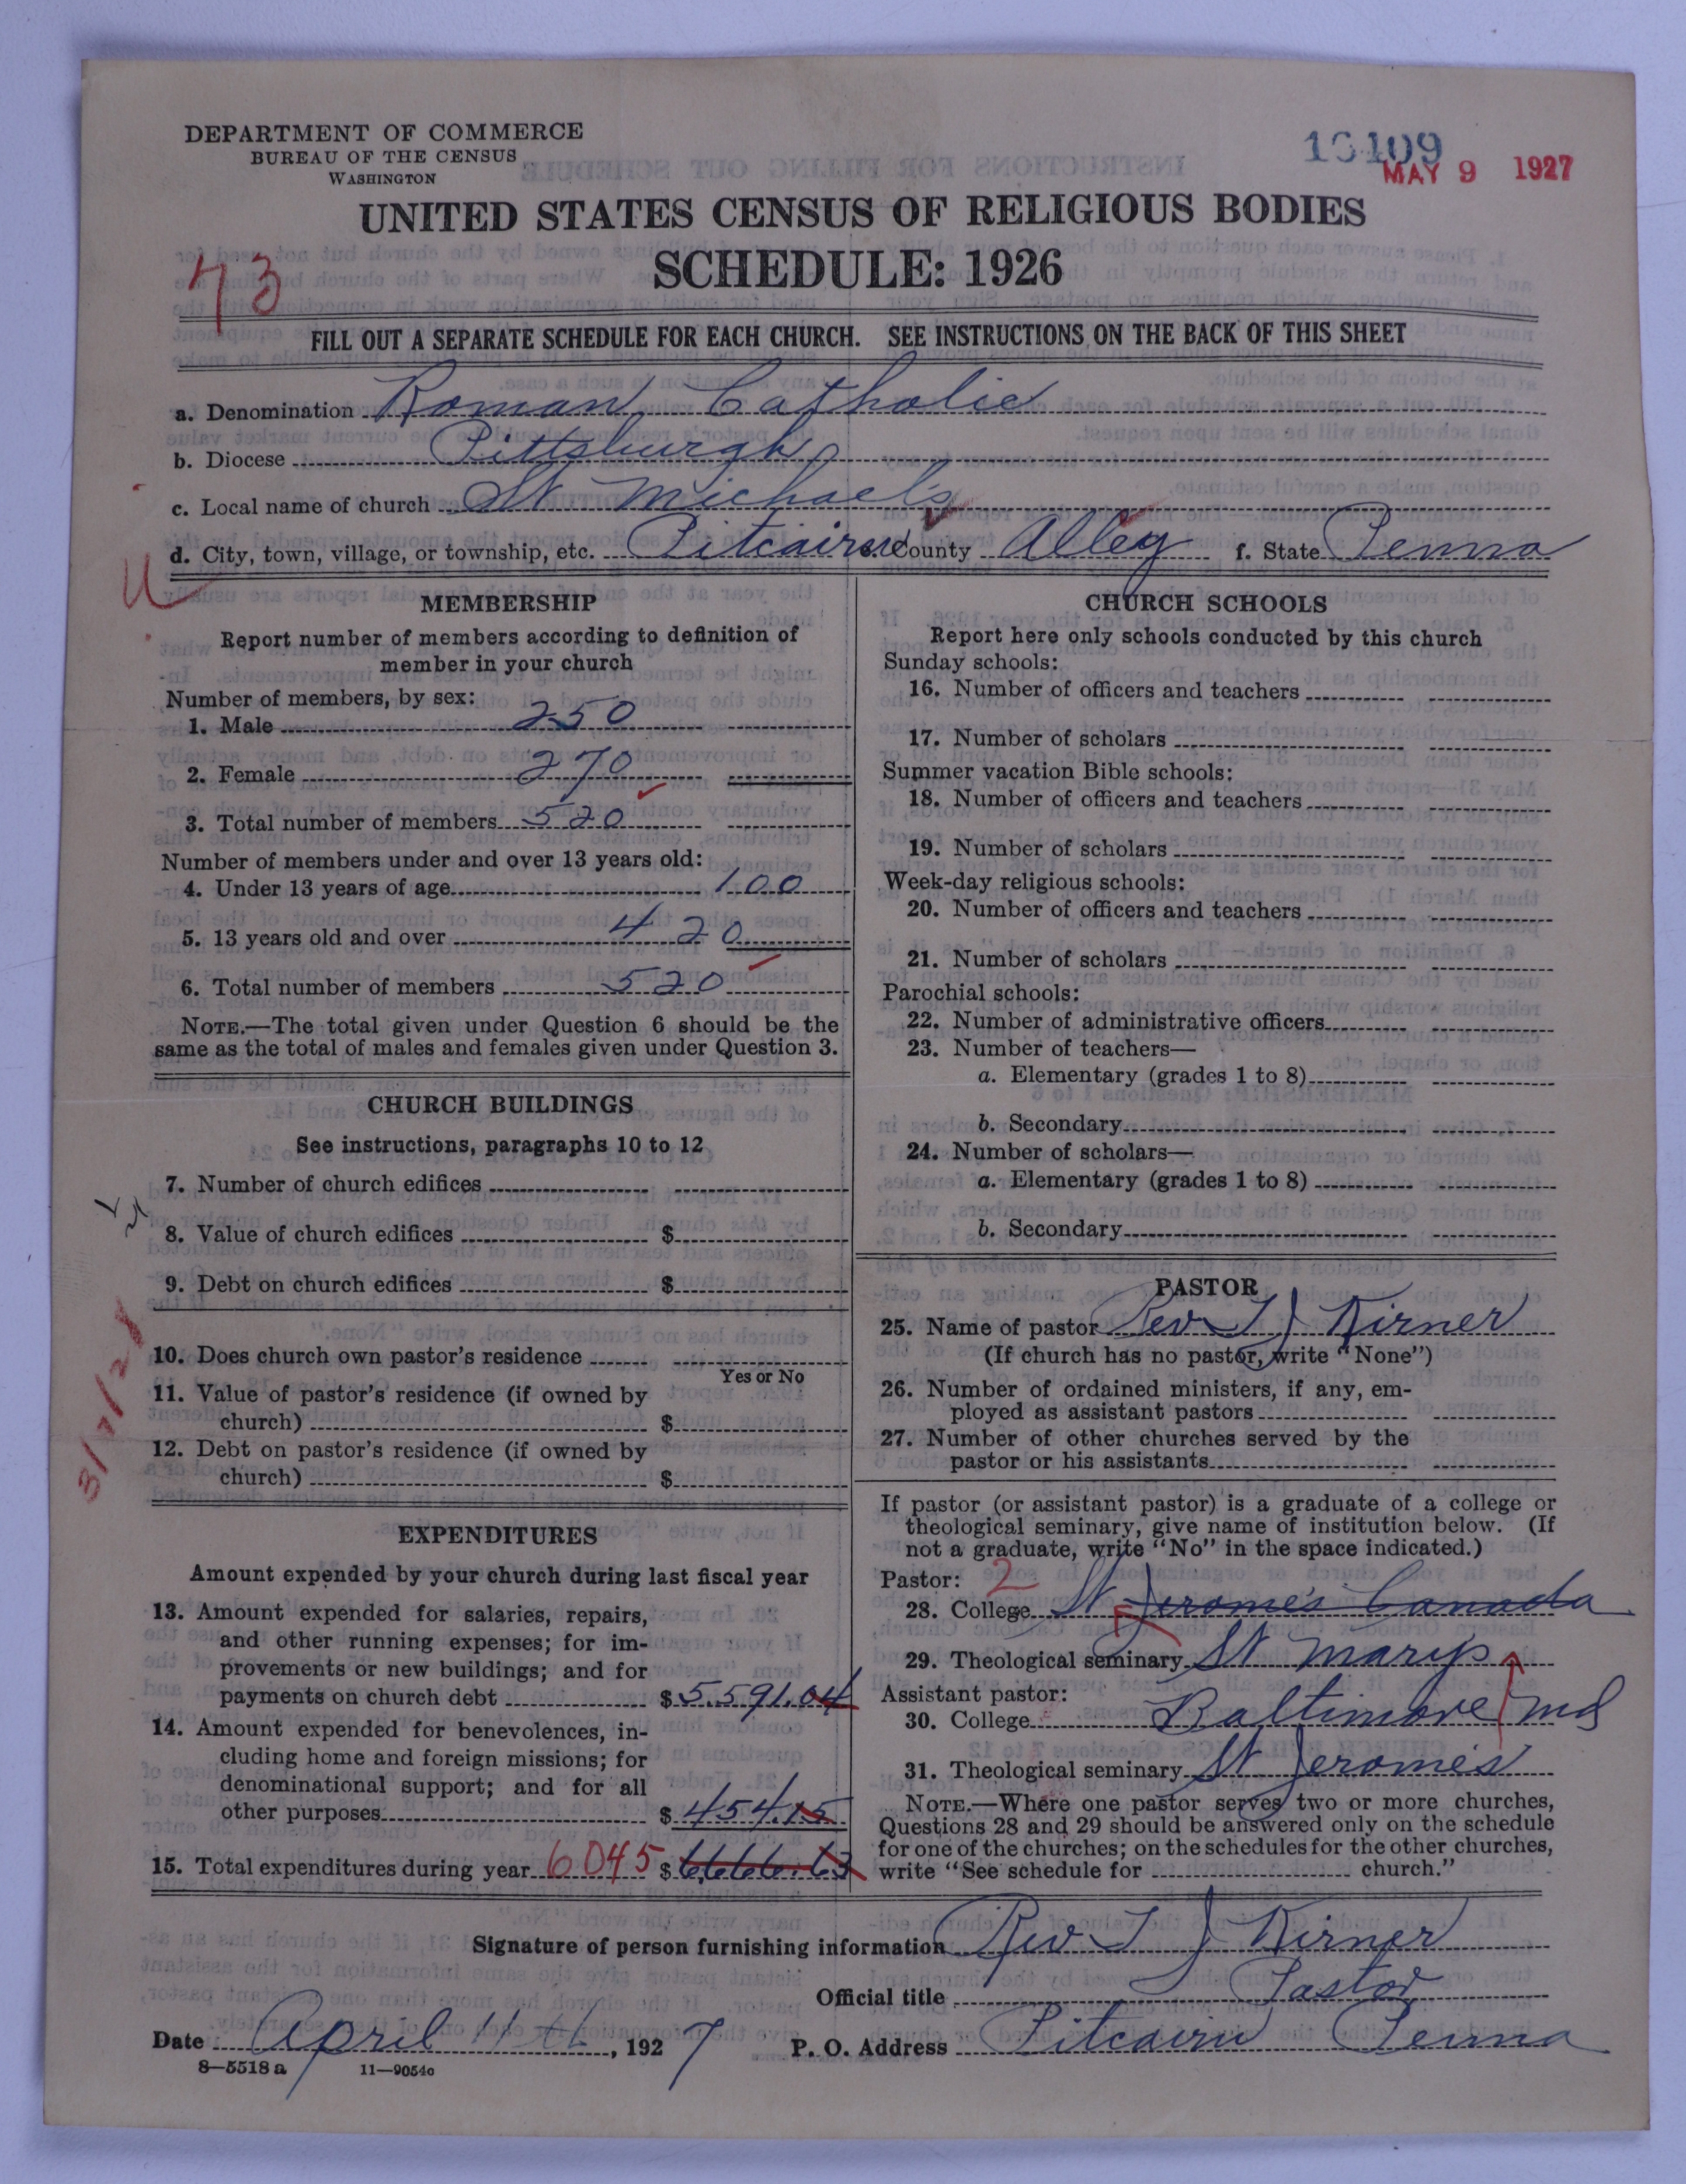 DEPARTMENT OF COMMERCE
BUREAU OF THE CENSUS
WASHINGTON
MAY 9 1927
UNITED STATES CENSUS OF RELIGIOUS BODIES
SCHEDULE: 1926
73
FILL OUT A SEPARATE SCHEDULE FOR EACH CHURCH. SEE INSTRUCTIONS ON THE BACK OF THIS SHEET
a. Denomination Roman Catholic
b. Diocese Pittsburgh
c. Local name of church St Michaels
d. City, town, village, or township, etc. Pitcairn e. County Alleg f. State Penna
MEMBERSHIP
Report number of members according to definition of
member in your church
Number of members, by sex:
1. Male 250
2. Female 270
3. Total number of members 520
Number of members under and over 13 years old:
4. Under 13 years of age 100
5. 13 years old and over 420
6. Total number of members 520
NOTE.—The total given under Question 6 should be the
same as the total of males and females given under Question 3.
CHURCH BUILDINGS
See instructions, paragraphs 10 to 12
7. Number of church edifices
8. Value of church edifices $
9. Debt on church edifices $
10. Does church own pastor's residence
Yes or No
11. Value of pastor's residence (if owned by
church) $
12. Debt on pastor's residence (if owned by
church) $
EXPENDITURES
Amount expended by your church during last fiscal year
13. Amount expended for salaries, repairs,
and other running expenses; for im-
provements or new buildings; and for
payments on church debt $ 5.591.04
14. Amount expended for benevolences, in-
cluding home and foreign missions; for
denominational support; and for all
other purposes $ 454.15
15. Total expenditures during year 6045 $ 6,666.63
CHURCH SCHOOLS
Report here only schools conducted by this church
Sunday schools:
16. Number of officers and teachers
17. Number of scholars
Summer vacation Bible schools:
18. Number of officers and teachers
19. Number of scholars
Week-day religious schools:
20. Number of officers and teachers
21. Number of scholars
Parochial schools:
22. Number of administrative officers
23. Number of teachers—
a. Elementary (grades 1 to 8)
b. Secondary
24. Number of scholars—
a. Elementary (grades 1 to 8)
b. Secondary
PASTOR
25. Name of pastor Rev T J Kirner
(If church has no pastor, write "None")
26. Number of ordained ministers, if any, em-
ployed as assistant pastors
27. Number of other churches served by the
pastor or his assistants
If pastor (or assistant pastor) is a graduate of a college or
theological seminary, give name of institution below. (If
not a graduate, write "No" in the space indicated.)
Pastor: 2
28. College St Jerome's Canada
29. Theological seminary St Marys
Assistant pastor:
30. College Baltimore Md
31. Theological seminary St Jeromes
NOTE.—Where one pastor serves two or more churches,
Questions 28 and 29 should be answered only on the schedule
for one of the churches; on the schedules for the other churches,
write "See schedule for church."
Signature of person furnishing information Rev T J Kirner
Official title Pastor
Date April 11th, 1927 P. O. Address Pitcairn Penna
8—5518 a 11—9054c